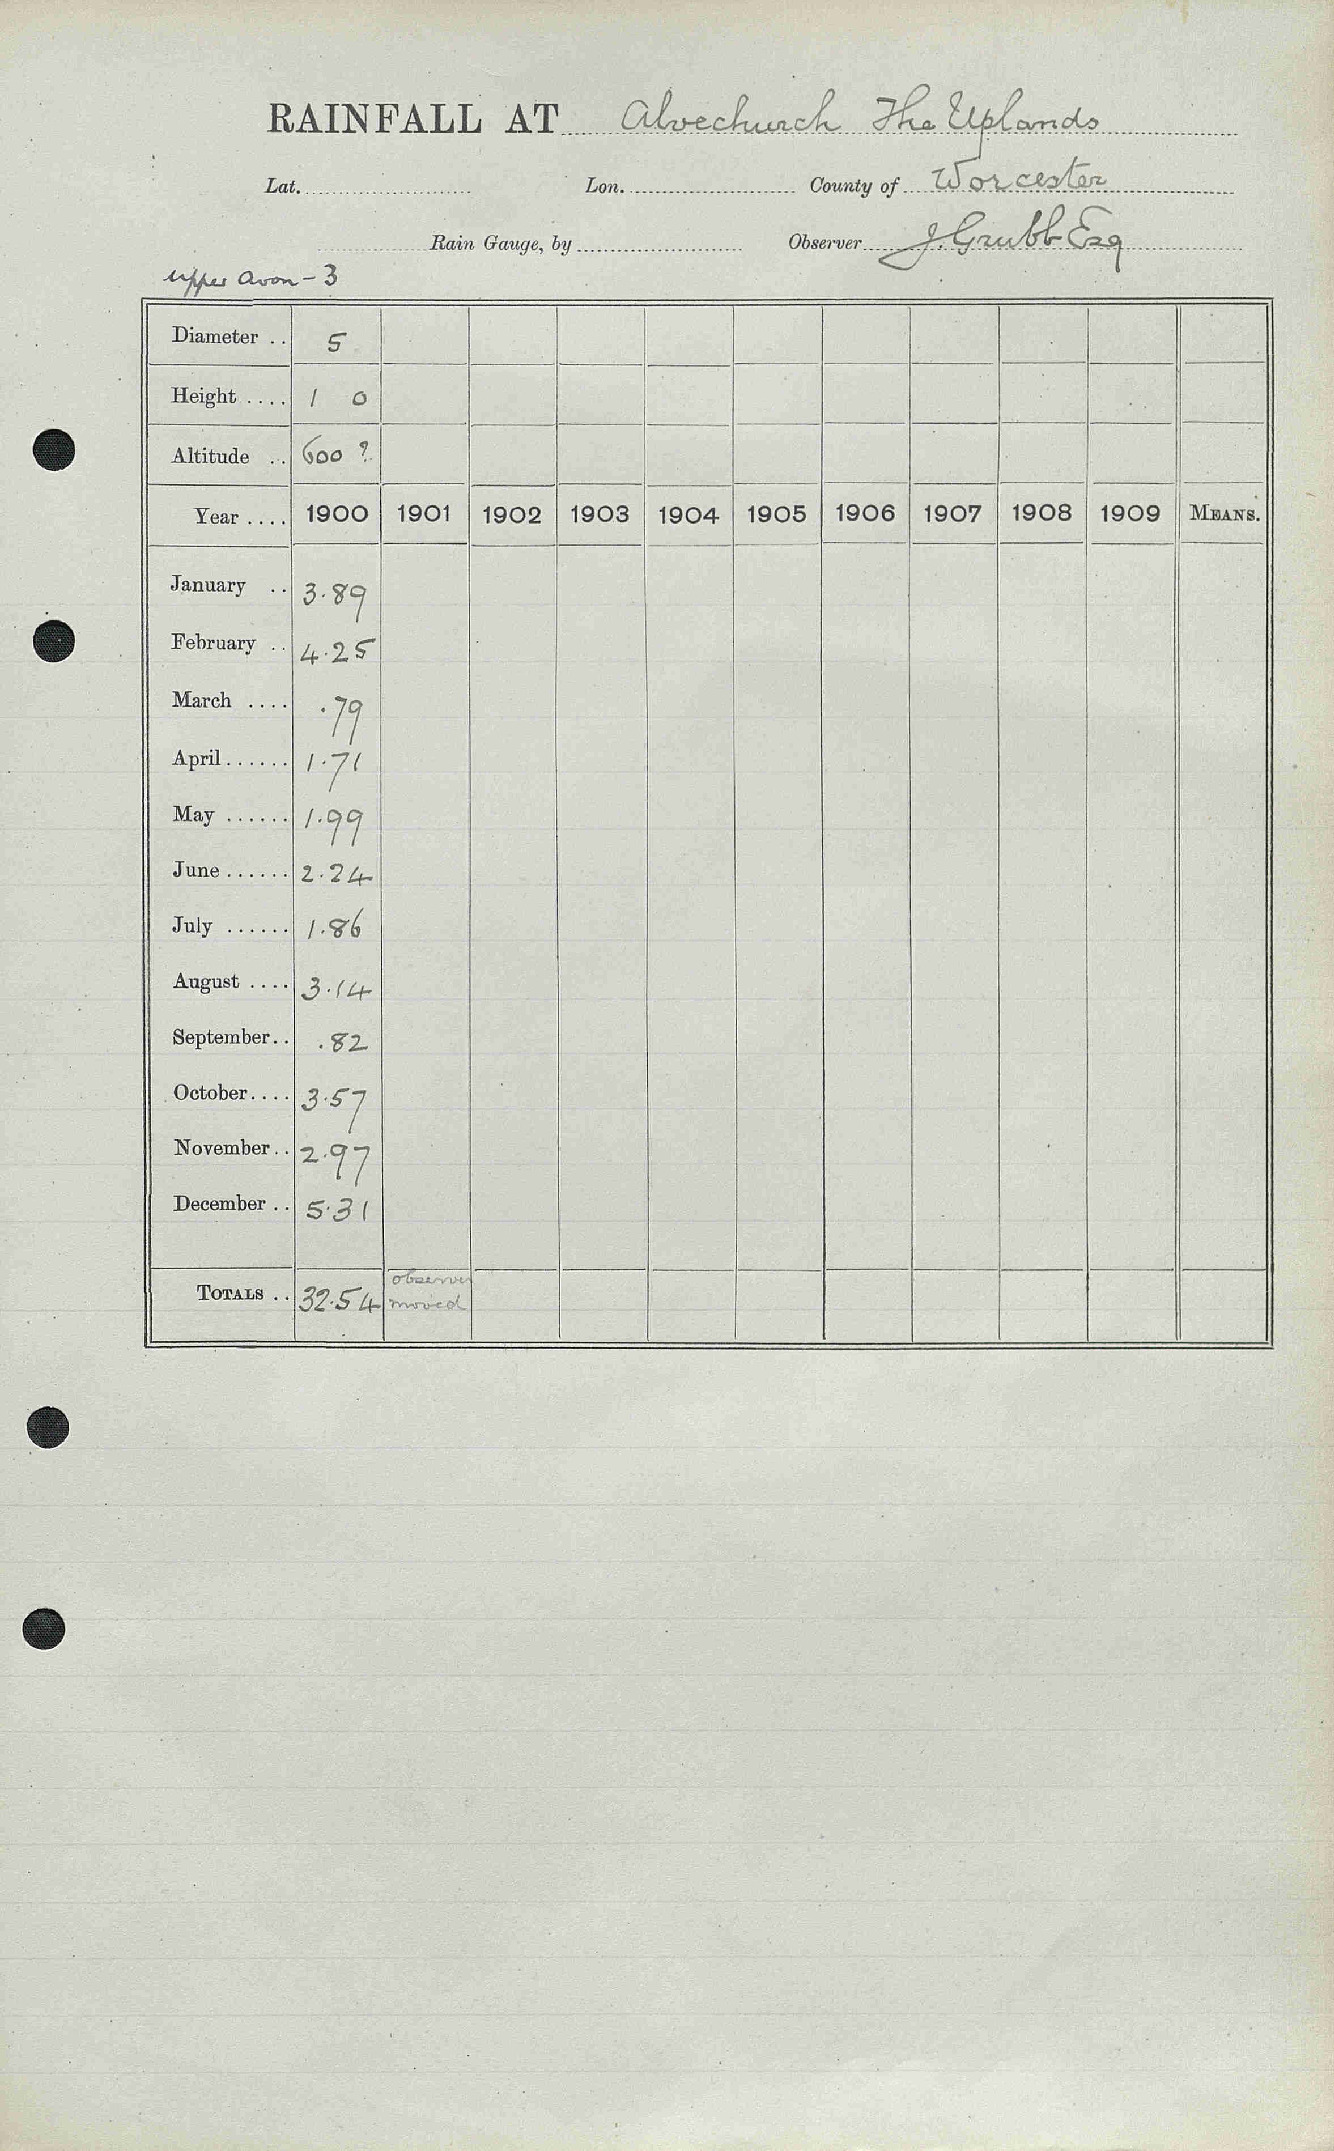 RAINFALL AT Alvechurch The Uplands
Lat. Lon. County of Worcester
Rain Gauge, by Observer J. Grubb Esq
Upper Avon - 3
Diameter .. 5
Height .... 1 0
Altitude .. 600 ?
Year .... 1900 1901 1902 1903 1904 1905 1906 1907 1908 1909 MEANS.
January .. 3.89
February .. 4.25
March .... .79
April ...... 1.71
May ...... 1.99
June ...... 2.24
July ...... 1.86
August .... 3.14
September .. .82
October .... 3.57
November .. 2.97
December .. 5.31
TOTALS .. 32.54 observer
moved